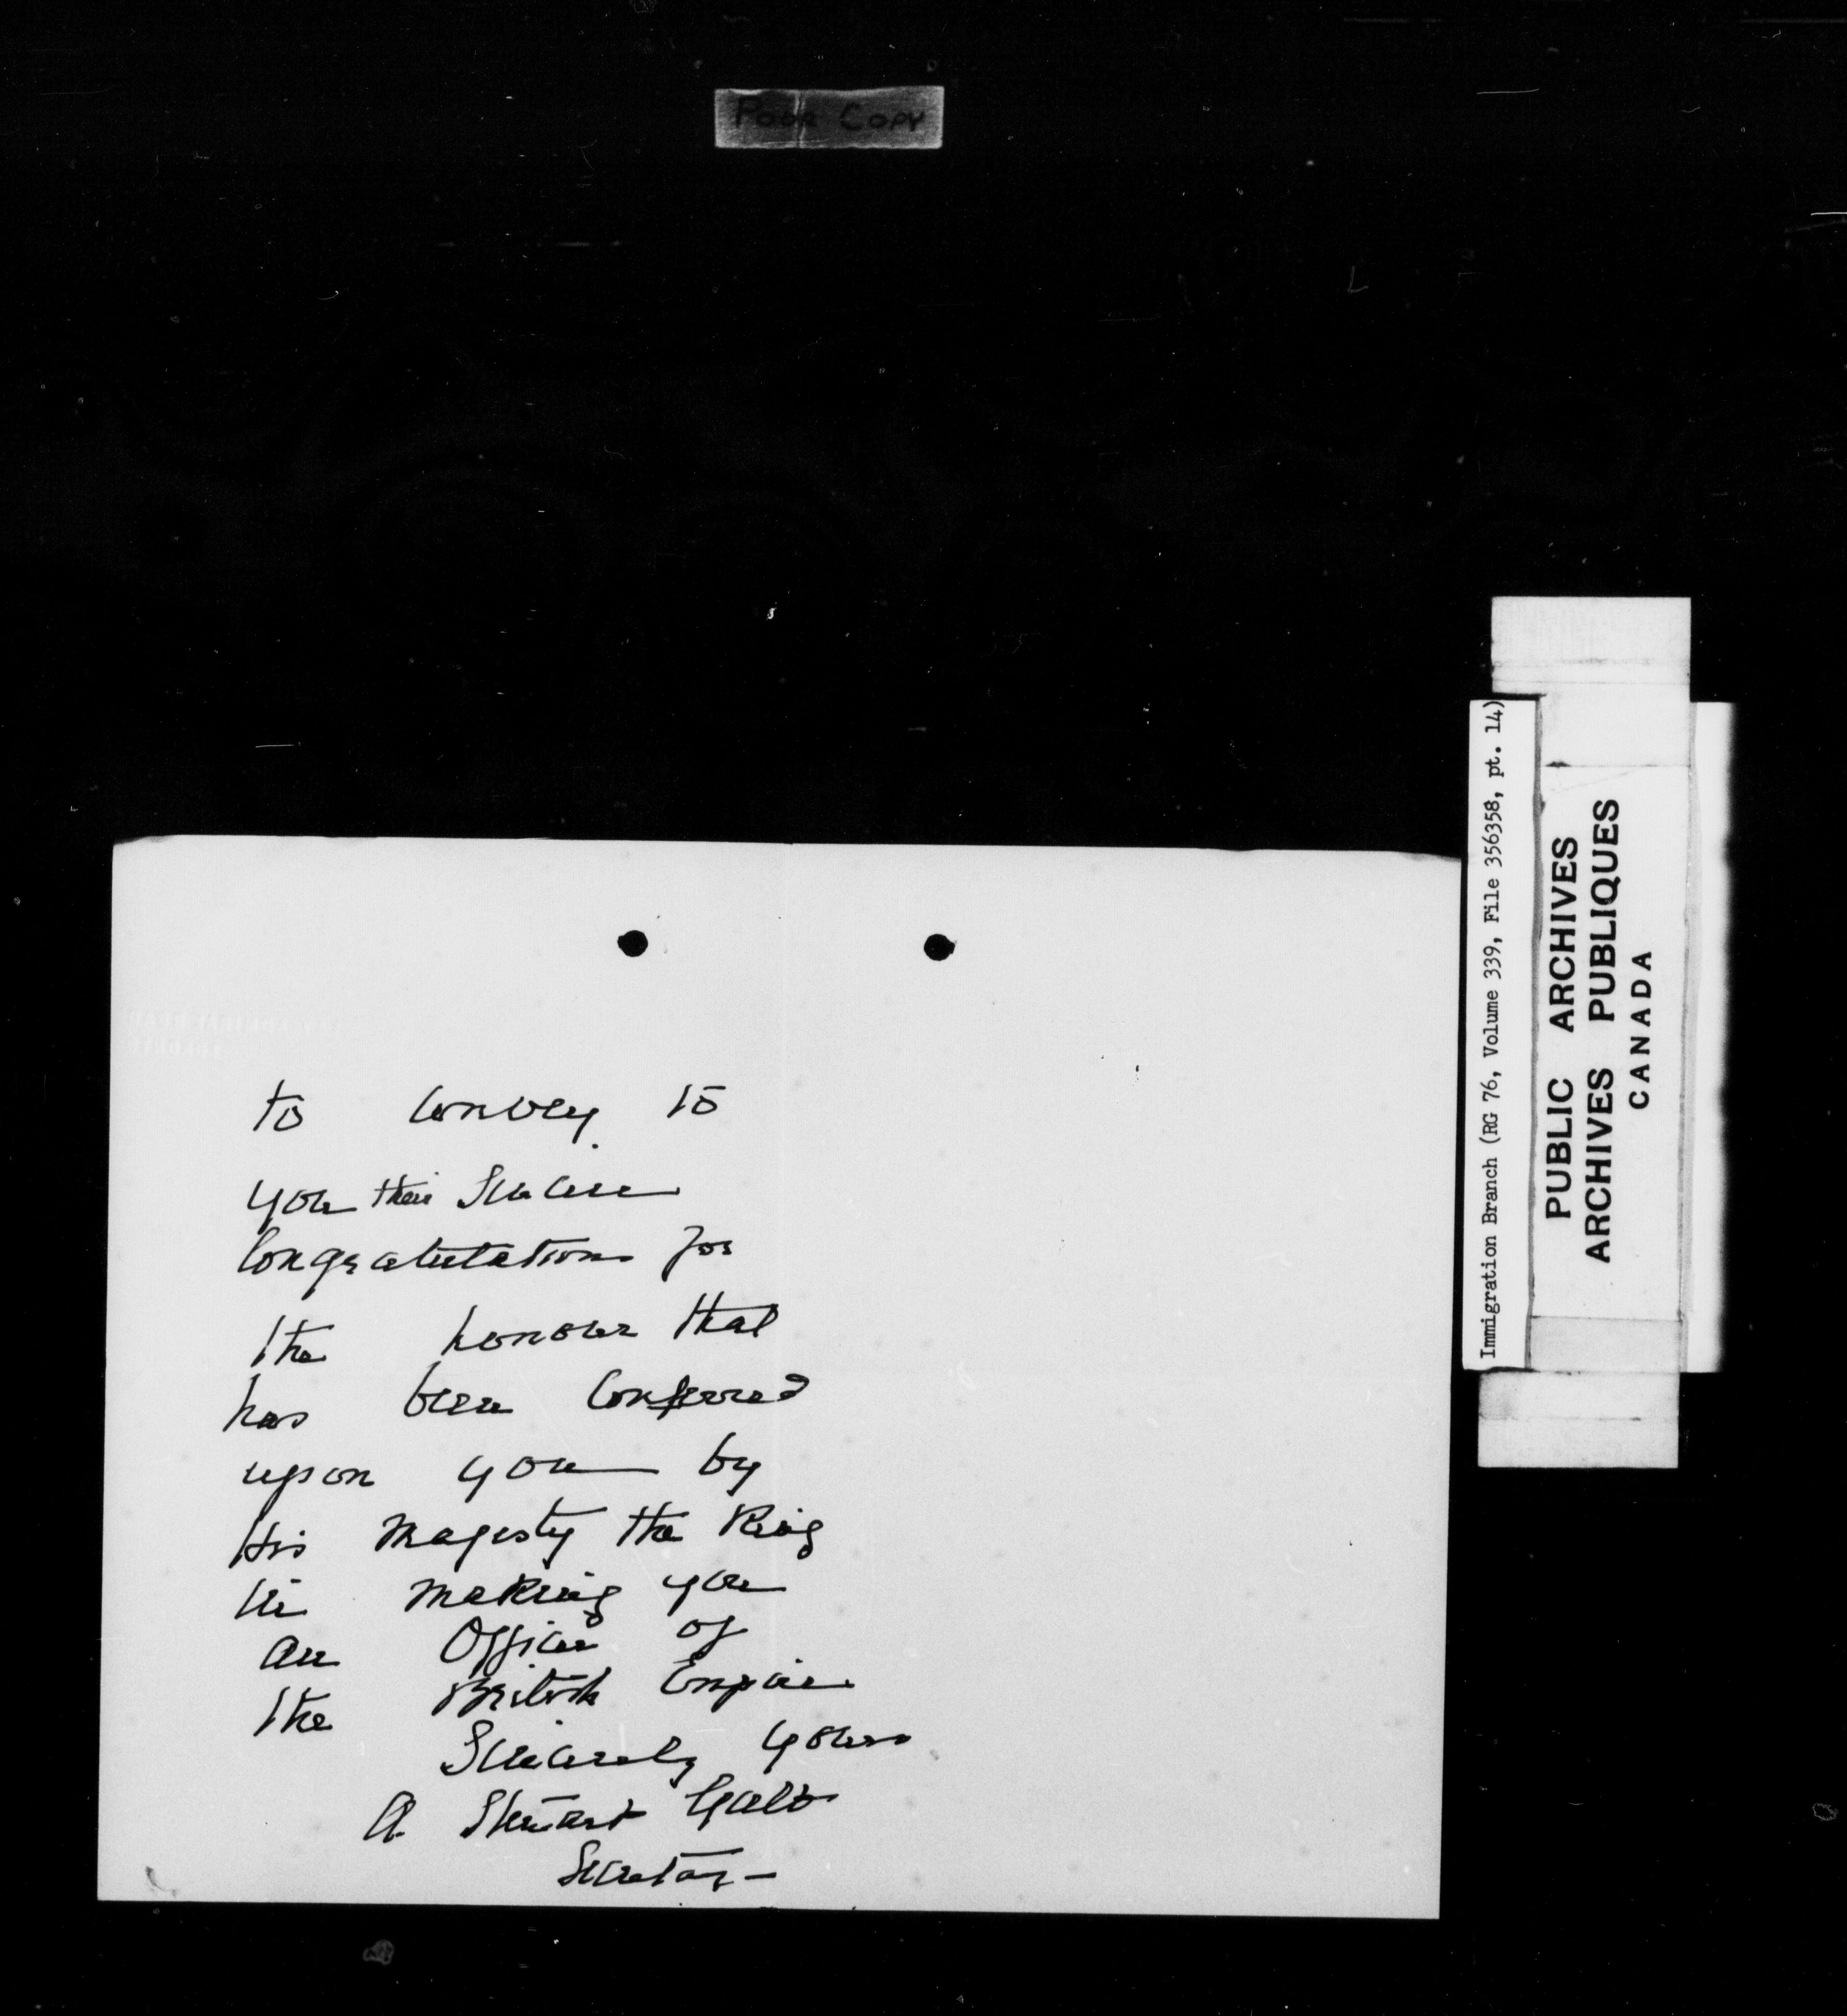 Poor Copy
to convey to
you their sincere
congratulations for
the honour that
has been conferred
upon you by
His Majesty the King
in making you
an Officer of
the British Empire
Sincerely yours
A. Stewart Galt
Secretary
Immigration Branch (RG 76, Volume 339, File 356358, pt. 14)
PUBLIC ARCHIVES
ARCHIVES PUBLIQUES
CANADA